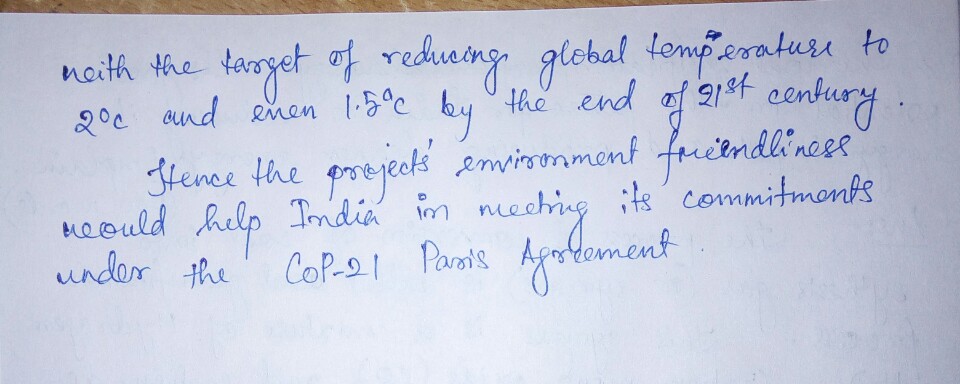 with the target of reducing global temperature to
2°C and even 1.5°C by the end of 21st century.
Hence the projects' environment friendliness
would help India in meeting its commitments
under the COP-21 Paris Agreement.